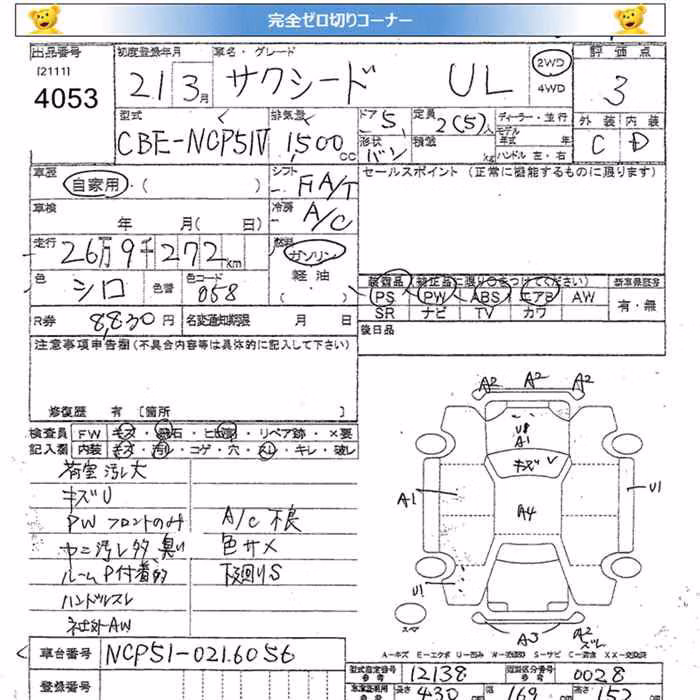 完全ゼロ切りコーナー
出品番号 初度登録年月 車名・グレード 評価点
[2111]
4053 21 3月 サクシード UL 2WD 4WD 3
型式 排気量 ドア 定員 ディーラー・並行 外装 内装
CBE-NCP51V 1,500 CC 5 2(5)人 モデル年式 年 C D
形状 バン 積載 kg ハンドル 左・右
車歴 自家用・( ) シフト FA/T セールスポイント (正常に機能するものに限ります)
車検 年 月( 日) 冷房 A/C
走行 26万9千272km 燃料 ガソリン・軽油
色 シロ 色番 色コード 058 ( )
装備品 (純正品に限り○をつけてください) 新車保証書
PS PW ABS エアB AW 有・無
SR ナビ TV カワ
R券 8,830円 名変通知期限 月 日
後日品
注意事項申告欄 (不具合内容等は具体的に記入して下さい)
修復歴 有 [箇所 ]
検査員 FW キズ・飛石・ヒビ割・リペア跡・×要
記入欄 内装 キズ・汚レ・コゲ・穴・スレ・キレ・破レ
荷室汚レ大
キズU
PWフロントのみ A/C不良
ヤニ汚レ多、臭い 色サメ
ルームP付着多 下廻りS
ハンドルスレ
社外AW
A2 A2 A2
U8
A1
キズ
A1 A4 U1
U1
スペア
A3 A2 スレ
A-キズ E-エクボ U-凹み W-波 S-サビ C-腐食 XX-交換済
車台番号 NCP51-0216056
型式指定番号 12138 類別区分番号 0028
登録番号
長さ 430 幅 169 高さ 152